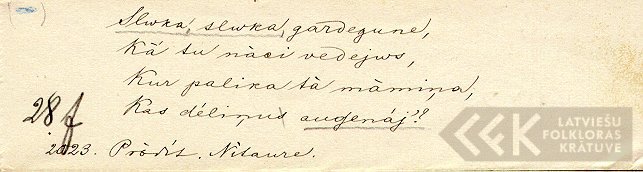 Slwka, slwka, gardegune,
Kā tu nāci vedejws,
Kur palika tā māmiņa,
Kas dēliņus augenāj'?
28f
2023. Prōdīt. Nitaure.
LATVIEŠU
FOLKLORAS
KRĀTUVE